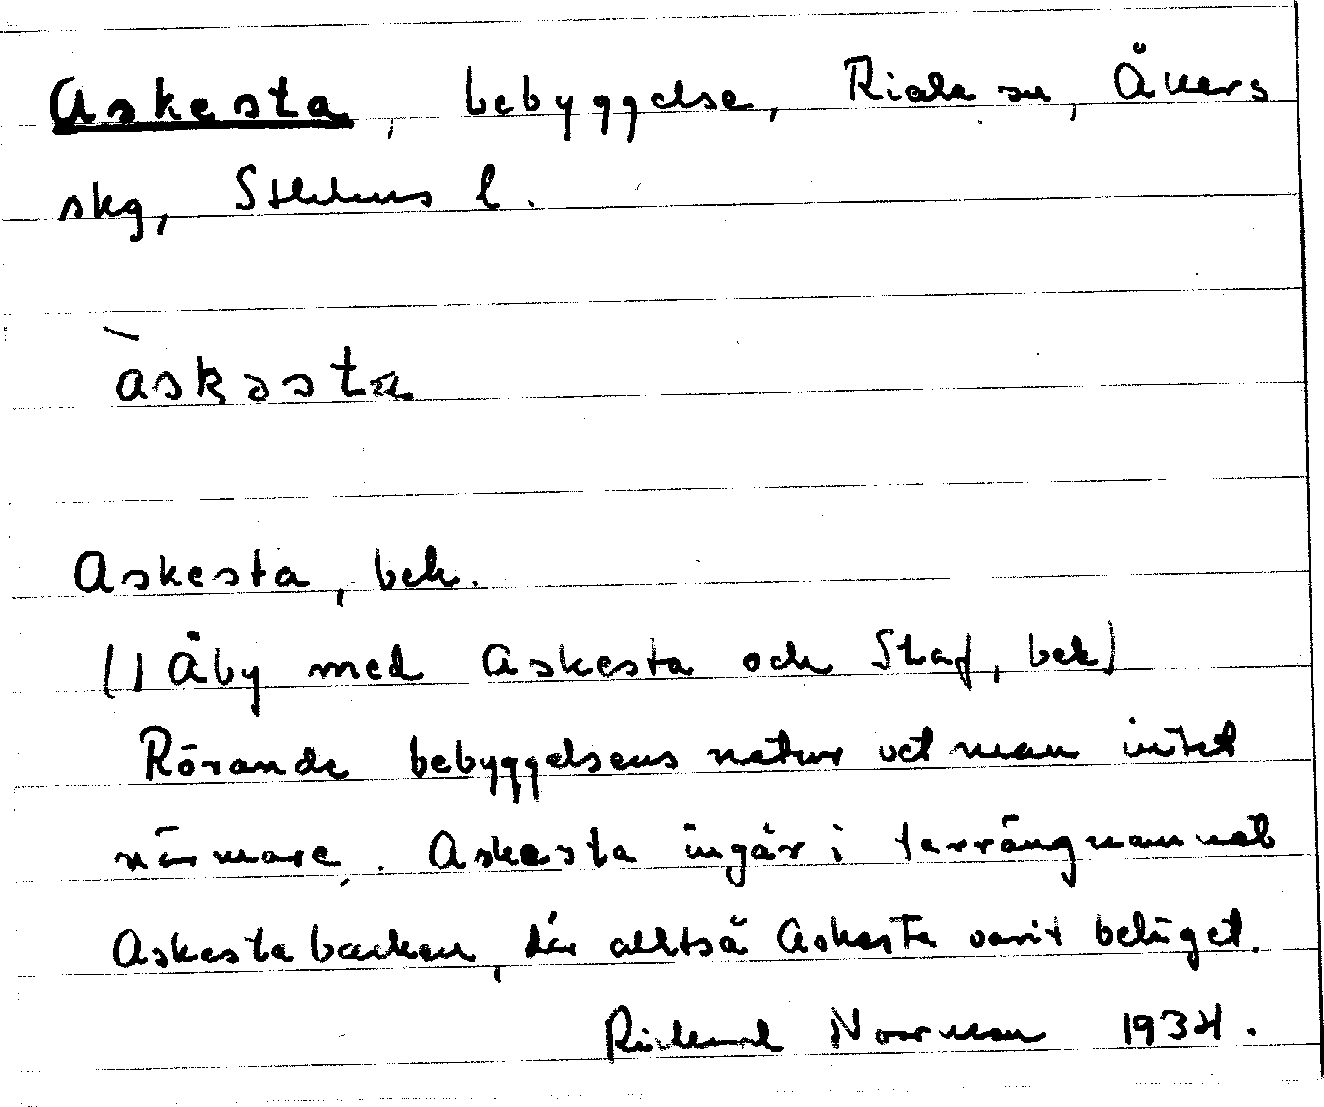 Askesta, bebyggelse, Riala sn, Åkers
skg, Sthlms l.
àskəsta
Askesta, bek.
( ) Åby med Askesta och Skaf, bek)
Rörande bebyggelsens natur vet man intet
närmare. Askesta ingår i terrängnamnet
Askestabacken, där alltså Askesta varit beläget.
Rickard Norrman 1934.